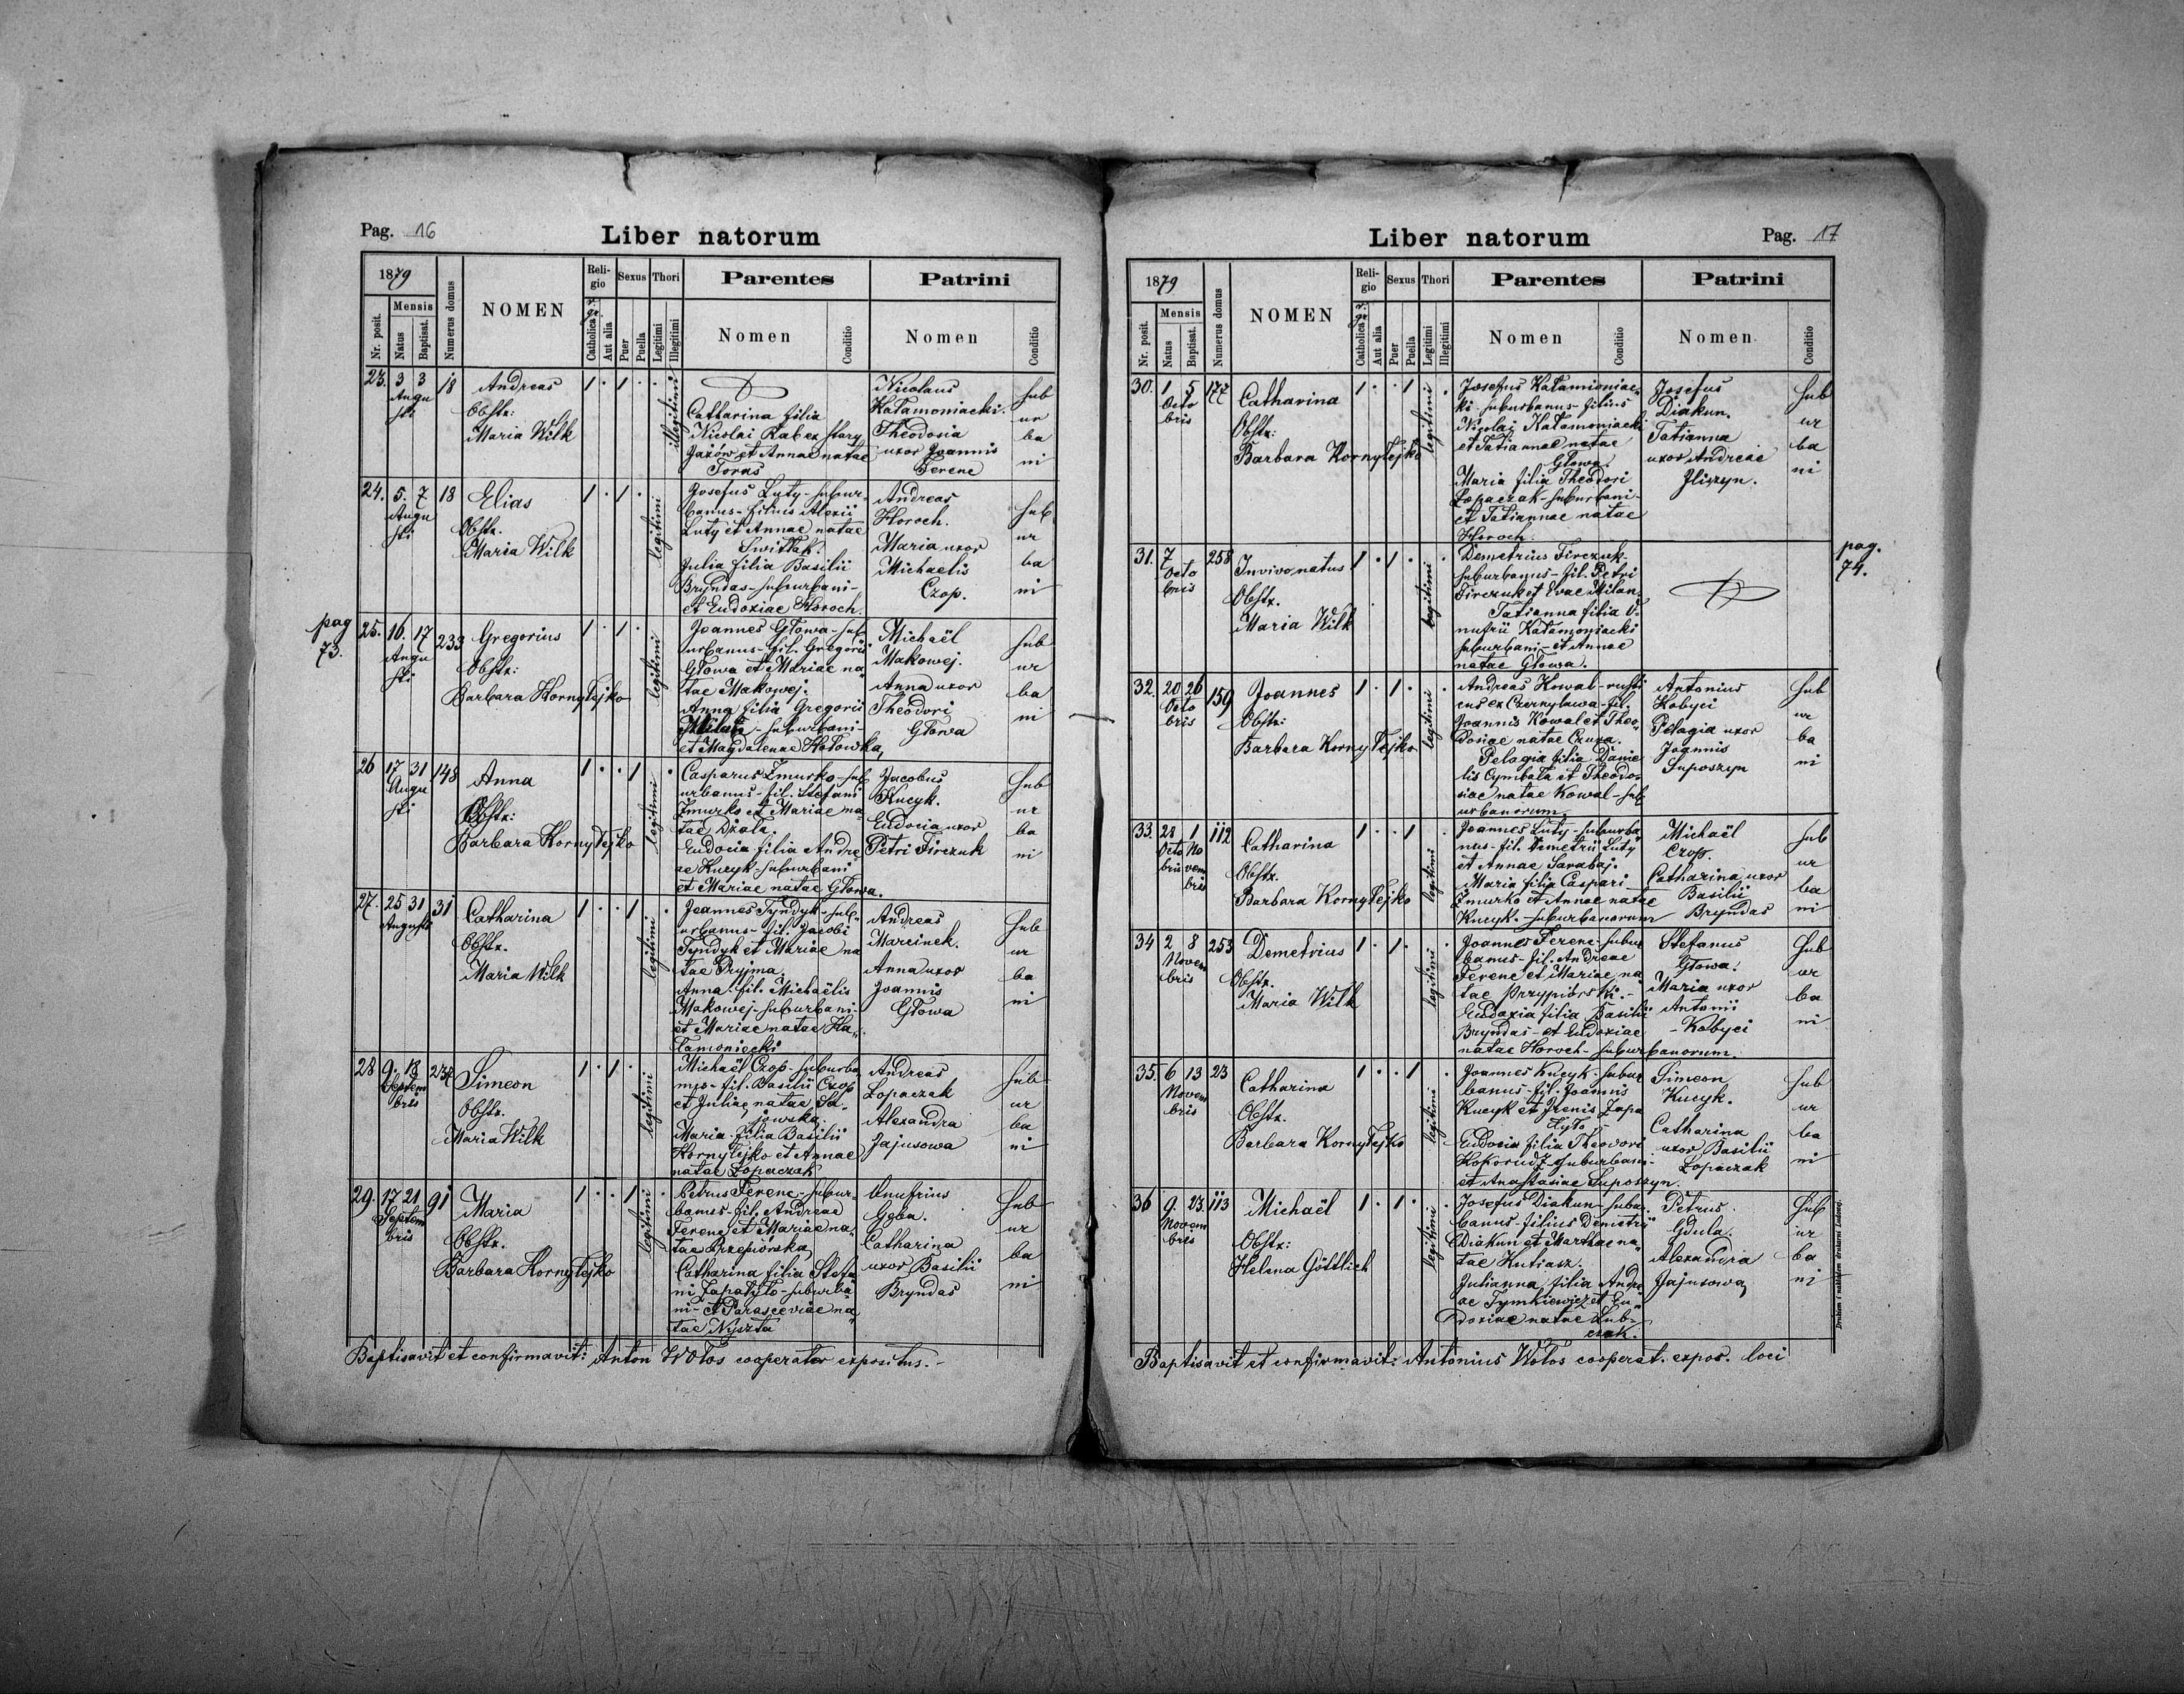 Pag. 16
Liber natorum
1879
Mensis
Nr. posit.
Natus
Baptisat.
Numerus domus
NOMEN
Religio
Catholica gr.
Aut alia
Sexus
Puer
Puella
Thori
Legitimi
Illegitimi
Parentes
Nomen
Conditio
Patrini
Nomen
Conditio
23. 3 3 18
Augu
sti
Andreas
Obstx:
Maria Wilk
1 . 1 . .
illegitimi
Catharina filia
Nicolai Rabex stary
Jazów et Annae natae
Toras
Nicolaus
Kałamoniacki.
Theodosia
uxor Joannis
Ferenc
sub
ur
ba
ni
24. 5. 7 18
Augu
sti
Elias
Obstx.
Maria Wilk
1 . 1 .
legitimi
Josefus Luty - subur-
banus - filius Alexii
Luty et Annae natae
Switłak.
Julia filia Basilii
Bryndas - suburbani -
et Eudoxiae Horoch.
Andreas
Horoch.
Maria uxor
Michaelis
Czop.
sub
ur
ba
ni
pag
73.
25. 16. 17 233
Augu
sti
Gregorius
Obstx:
Barbara Kornyłejko
1 . 1 .
legitimi
Joannes Głowa - sub
urbanus - fil. Gregorii
Głowa et Mariae na
tae Makowej.
Anna filia Gregorii
- suburbani -
et Magdalenae Hotowka,
Michaël
Makowej.
Anna uxor
Theodori
Głowa
sub
ur
ba
ni
26 17 31 148
Augu
sti
Anna
Obstx:
Barbara Kornyłejko
1 . . 1 .
legitimi
Casparus Żmurko - sub
urbanus - fil. Stefani
Żmurko et Mariae na
tae Działa.
Eudocia filia Andre
ae Kucyk - suburbani
et Mariae natae Głowa.
Jacobus
Kucyk.
Eudocia uxor
Petri Firczuk
sub
ur
ba
ni
27. 25 31 31
Augusti
Catharina
Obstx.
Maria Wilk
1 . . 1 .
legitimi
Joannes Tyndyk - sub
urbanus - fil. Jacobi
Tyndyk et Mariae na
tae Pryjma.
Anna fil. Michaëlis
Makowej - suburbani -
et Mariae natae Ka
łamoniecki
Andreas
Marcinek.
Anna uxor
Joannis
Głowa
sub
ur
ba
ni
28 9. 18 234
Septem
bris
Simeon
Obstx.
Maria Wilk
1 . 1 .
legitimi
Michaël Czop - suburba
nus - fil. Basilii Czop
et Juliae natae Sa
jowska.
Maria filia Basilii
Kornyłejko et Annae
natae Łopaczak
Andreas
Łopaczak
Alexandra
Jajusowa
sub
ur
ba
ni
29. 17 21 91
Septem
bris
Maria
Obstx.
Barbara Kornyłejko
1 . . 1 .
legitimi
Petrus Ferenc - subur-
banus - fil. Andreae
Ferenc et Mariae na
tae Przepiórska
Catharina filia Stefa
ni Zapatyło - suburba
ni - et Parasceviae na
tae Nyszta
Onufrius
Goba.
Catharina
uxor Basilii
Bryndas
sub
ur
ba
ni
Baptisavit et confirmavit: Anton Wołos cooperator expositus. -
Liber natorum
Pag. 17
1879
Mensis
Nr. posit.
Natus
Baptisat.
Numerus domus
NOMEN
Religio
Catholica gr.
Aut alia
Sexus
Puer
Puella
Thori
Legitimi
Illegitimi
Parentes
Nomen
Conditio
Patrini
Nomen
Conditio
30. 1 5 177
Octo
bris
Catharina
Obstx:
Barbara Kornyłejko
1 . . 1 .
legitimi
Josefus Kałamoniac
ki - suburbanus - filius
Nicolai Kałamoniacki
et Tatiannae natae
Głowa.
Maria filia Theodori
Łopaczak - suburbani -
et Tatiannae natae
Horoch.
Josefus
Diakun.
Tatianna
uxor Andreae
Iliszyn.
sub
ur
ba
ni
31. 7 258
Octo
bris
Invivonatus
Obstx.
Maria Wilk
1 . 1 .
legitimi
Demetrius Firczuk -
suburbanus - fil. Petri
Firczuk et Evae Milan.
Tatianna filia O
nufrii Kałamoniacki
suburbani - et Annae
natae Głowa.
pag.
74.
32. 20 26 159
Octo
bris
Joannes
Obstx:
Barbara Kornyłejko
1 . 1 .
legitimi
Andreas Kowal - rusti
cus ex Czernyława - fil.
Joannis Kowal et Theo
dosiae natae Czura.
Pelagia filia Danie
lis Cymbała et Theodo
siae natae Kowal - sub
urbanorum.
Antonius
Kobyci
Pelagia uxor
Joannis
Suposzyn
sub
ur
ba
ni
33. 28 1 112
Octo No
bris vem
bris
Catharina
Obstx.
Barbara Kornyłejko
1 . . 1 .
legitimi
Joannes Luty - suburba
nus - fil. Demetrii Luty
et Annae Sarabaj.
Maria filia Caspari
Żmurko et Annae natae
Kucyk. - suburbanorum
Michaël
Czop.
Catharina uxor
Basilii
Bryndas
sub
ur
ba
ni
34 2 8 253
Novem
bris
Demetrius
Obstx.
Maria Wilk
1 . 1 .
legitimi
Joannes Ferenc - subur
banus - fil. Andreae
Ferenc et Mariae na
tae Przypiórski. -
Eudoxia filia Basilii
Bryndas - et Eudoxiae
natae Horoch - suburbanorum.
Stefanus
Głowa.
Maria uxor
Antonii
- Kobyci
sub
ur
ba
ni
35. 6 13 23
Novem
bris
Catharina
Obstx.
Barbara Kornyłejko
1 . . 1
legitimi
Joannes Kucyk - subur
banus - fil. Joannis
Kucyk et Irenis Zapa
tyło -
Eudocia filia Theodori
Kokorudz - suburbani -
et Anastasiae Suposzyn.
Simeon
Kucyk.
Catharina
uxor Basilii
Łopaczak
sub
ur
ba
ni
36 9. 23. 113
Novem
bris
Michaël
Obstx:
Helena Göttlich
1 . 1 .
legitimi
Josefus Diakun - subur
banus - filius Demetrii
Diakun et Marthae na
tae Kutiasz.
Julianna filia Andre
ae Tymkiewicz et Eu
doxiae natae Łub-
czak.
Petrus
Gdula.
Alexandra
Jajusowa
sub
ur
ba
ni
Drukiem i nakładem drukarni Ludowej.
Baptisavit et confirmavit: Antonius Wołos cooperat. expos. loci